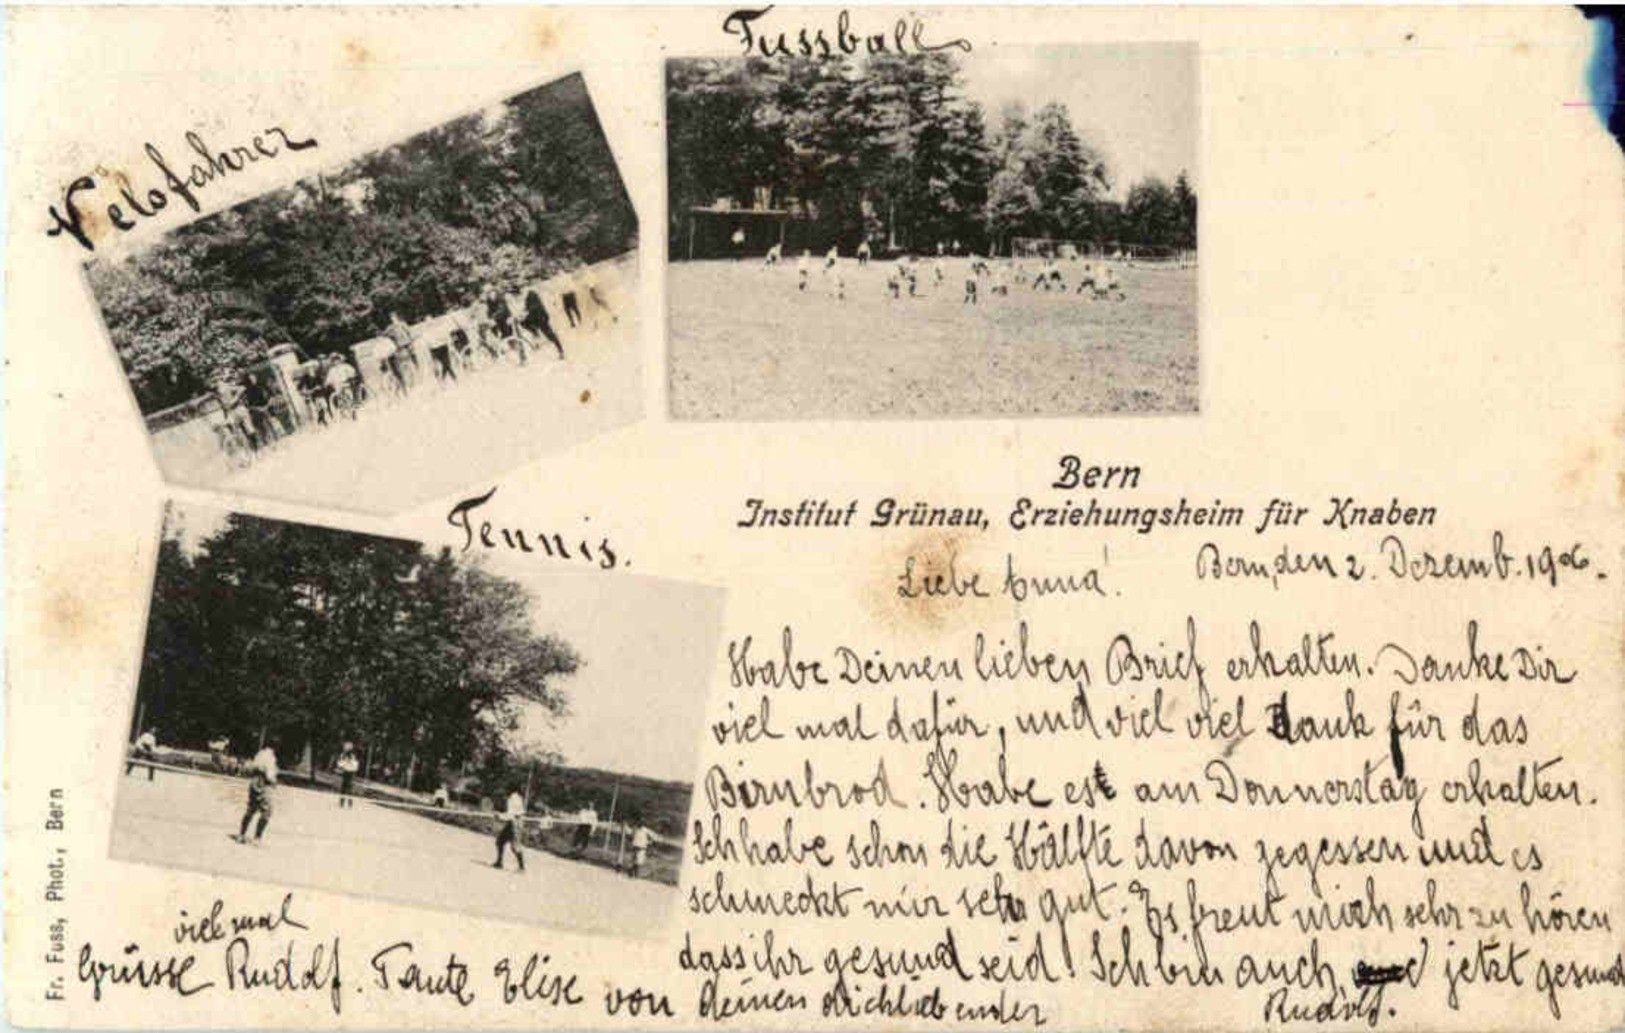 Fussball
Velofahrer
Tennis.
Bern
Institut Grünau, Erziehungsheim für Knaben
Bern, den 2. Dezemb. 1906.
Liebe Anna!
Habe Deinen lieben Brief erhalten. Danke Dir
viel mal dafür, und viel viel Dank für das
Birnbrod. Habe es am Donnerstag erhalten.
Ich habe schon die Hälfte davon gegessen und es
schmeckt mir sehr gut. Es freut mich sehr zu hören
dass ihr gesund seid! Ich bin auch jetzt gesund
viel mal
Grüsse Rudolf. Tante Elise von deinen dichliebender
Rudolf.
Fr. Fuss, Phot., Bern